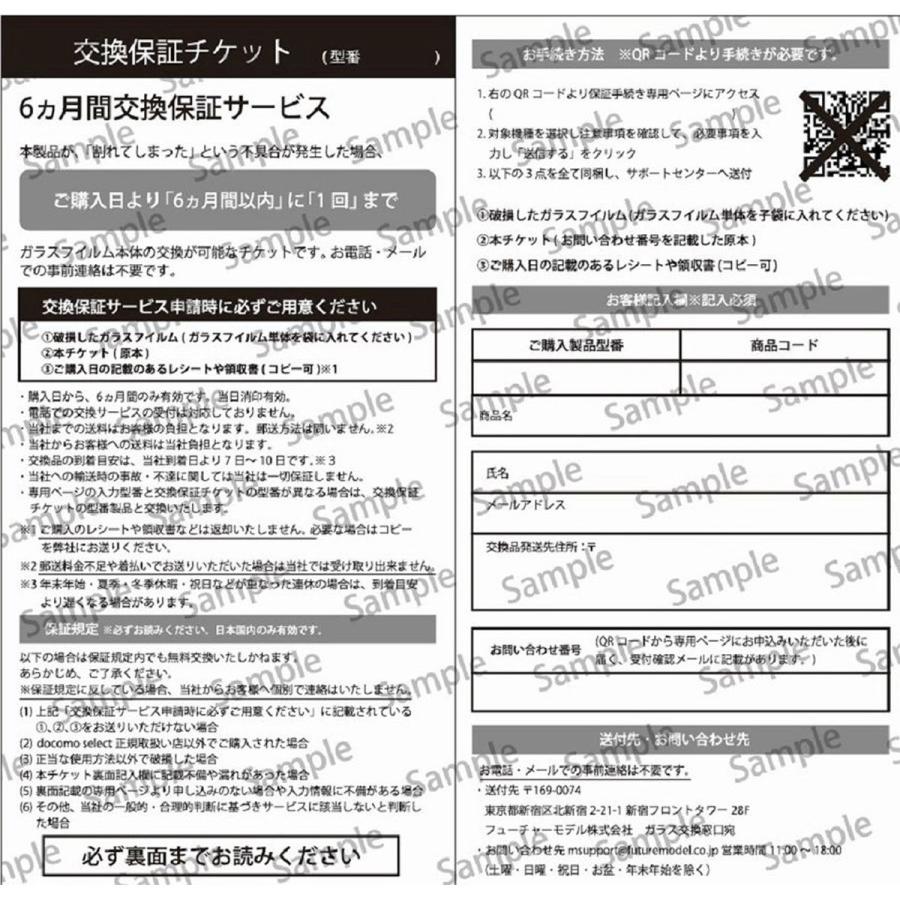 交換保証チケット (型番 )
6ヵ月間交換保証サービス
本製品が、「割れてしまった」という不具合が発生した場合、
ご購入日より「6ヵ月間以内」に「1回」まで
ガラスフイルム本体の交換が可能なチケットです。お電話・メール
での事前連絡は不要です。
交換保証サービス申請時に必ずご用意ください
①破損したガラスフイルム(ガラスフイルム単体を袋に入れてください)
②本チケット(原本)
③ご購入日の記載のあるレシートや領収書(コピー可)※1
・購入日から、6ヵ月間のみ有効です。当日消印有効。
・電話での交換サービスの受付は対応しておりません。
・当社までの送料はお客様の負担となります。郵送方法は問いません。※2
・当社からお客様への送料は当社負担となります。
・交換品の到着目安は、当社到着日より7日〜10日です。※3
・当社への輸送時の事故・不達に関しては当社は一切保証しません。
・専用ページの入力型番と交換保証チケットの型番が異なる場合は、交換保証
チケットの型番製品と交換いたします。
※1ご購入のレシートや領収書などは返却いたしません。必要な場合はコピー
を弊社にお送りください。
※2郵送料金不足や着払いでお送りいただいた場合は当社では受け取り出来ません。
※3年末年始・夏季・冬季休暇・祝日などが重なった連休の場合は、到着目安
より遅くなる場合があります。
保証規定 ※必ずお読みください、日本国内のみ有効です。
以下の場合は保証規定内でも無料交換いたしかねます。
あらかじめ、ご了承ください。
※保証規定に反している場合、当社からお客様へ個別で連絡はいたしません。
(1)上記「交換保証サービス申請時に必ずご用意ください」に記載されている
①、②、③をお送りいただけない場合
(2) docomo select 正規取扱い店以外でご購入された場合
(3)正当な使用方法以外で破損した場合
(4)本チケット裏面記入欄に記載不備や漏れがあった場合
(5)裏面記載の専用ページより申し込みのない場合や入力情報に不備がある場合
(6)その他、当社の一般的・合理的判断に基づきサービスに該当しないと判断し
た場合
必ず裏面までお読みください
お手続き方法 ※QRコードより手続きが必要です。
1. 右のQRコードより保証手続き専用ページにアクセス
( )
2. 対象機種を選択し注意事項を確認して、必要事項を入
力し「送信する」をクリック
3. 以下の3点を全て同梱し、サポートセンターへ送付
①破損したガラスフイルム(ガラスフイルム単体を子袋に入れてください)
②本チケット(お問い合わせ番号を記載した原本)
③ご購入日の記載のあるレシートや領収書(コピー可)
お客様記入欄※記入必須
ご購入製品型番 商品コード
商品名
氏名
メールアドレス
交換品発送先住所:〒
お問い合わせ番号 (QRコードから専用ページにお申込みいただいた後に
届く、受付確認メールに記載があります。)
送付先・お問い合わせ先
お電話・メールでの事前連絡は不要です。
・送付先 〒169-0074
東京都新宿区北新宿2-21-1 新宿フロントタワー 28F
フューチャーモデル株式会社 ガラス交換窓口宛
・お問い合わせ先 msupport@futuremodel.co.jp 営業時間 11:00〜18:00
(土曜・日曜・祝日・お盆・年末年始を除く)
Sample